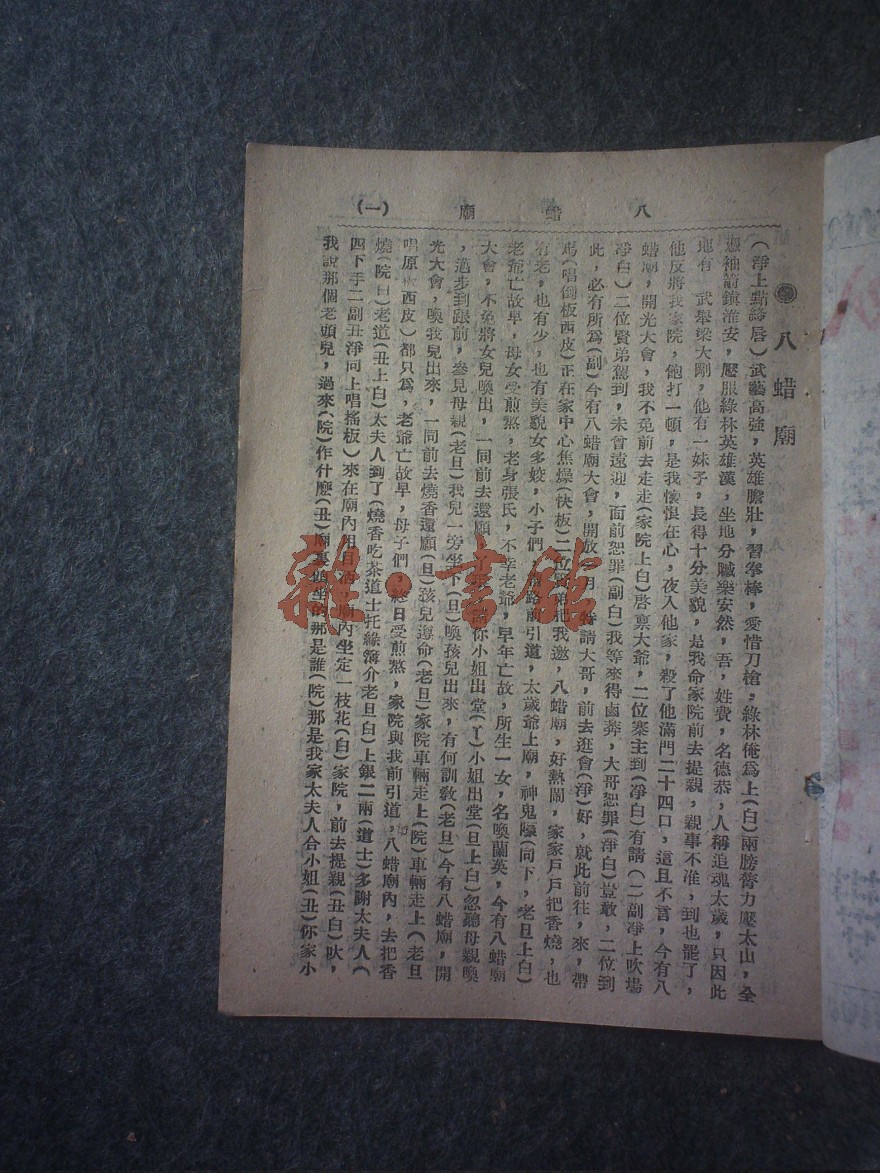 八蜡廟
(一)
八蜡廟
(淨上點絳唇)武藝高強,英雄膽壯,習拳棒,愛惜刀槍,綠林俺爲上(白)兩膀膂力壓太山,全
憑袖箭鎮淮安,壓服綠林英雄漢,坐地分贓樂安然,吾,姓費,名德恭,人稱追魂太歲,只因此
地有 武舉梁大剛,他有一妹子,長得十分美貌,是我命家院前去提親,親事不准,到也罷了,
他反將我家院,飽打一頓,是我懷恨在心,夜入他家,殺了他滿門二十四口,這且不言,今有八
蜡廟,開光大會,我不免前去走走(家院上白)啓禀大爺,二位寨主到(淨白)有請(二副淨上吹場
淨白)二位賢弟駕到,未曾遠迎,面前恕罪(副白)我等來得鹵莽,大哥恕罪(淨白)豈敢,二位到
此,必有所爲(副)今有八蜡廟大會,開放 月,特請大哥,前去逛會(淨)好,就此前往,來,帶
馬(唱倒板西皮)正在家中心焦燥(快板)二位賢弟把我邀,八蜡廟,好熱鬧,家家戶戶把香燒,也
有老,也有少,也有美貌女多姣,小子們, 路前引道,太歲爺上廟,神鬼 (同下,老旦上白)
老爺亡故早,母女受煎熬,老身張氏,不幸老爺,早年亡故,所生一女,名喚蘭英,今有八蜡廟
大會,不免將女兒喚出,一同前去還願 你小姐出堂(丫)小姐出堂(旦上白)忽聽母親喚
,邁步到跟前,參見母親(老旦)我兒一旁坐下(旦)喚孩兒出來,有何訓敎(老旦)今有八蜡廟,開
光大會,喚我兒出來,一同前去燒香還願(旦)孩兒遵命(老旦)家院車輛走上(院)車輛走上(老旦
唱原板西皮)都只爲,老爺亡故早,母子們,終日受煎熬,家院與我前引道,八蜡廟內,去把香
燒(院白)老道(丑上白)太夫人到了(燒香吃茶道士托緣簿介老旦白)上銀二兩(道士)多謝太夫人(
四下手二副丑淨同上唱搖板)來在廟內用目 廟內坐定一枝花(白)家院,前去提親(丑白)呔,
我說那個老頭兒,過來(院)作什麽(丑)廟裏頭坐的那是誰(院)那是我家太夫人合小姐(丑)你家小
雜·書館